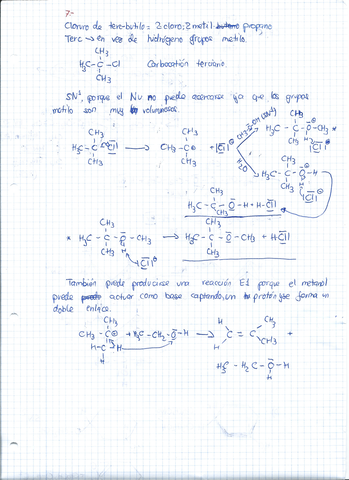 7-
Cloruro de terc-butilo = 2 cloro; 2 metil propano
Terc → en vez de hidrógeno grupos metilo.
CH₃
H₃C-C-Cl Carbocatión terciario.
CH₃
SN¹, porque el Nu no puede acercarse ya que los grupos
metilo son muy voluminosos.
CH₃ CH₃
H₃C-C-Cl → CH₃-C⊕ + Cl⊖
CH₃ CH₃
H₂O
CH₃
H₃C-C-O-CH₃ *
CH₃ H
Cl⊖
CH₃
H₃C-C-O-H
CH₃ H
Cl⊖
H₃C-C-O-H + H-Cl
CH₃
CH₃ CH₃
* H₃C-C-O-CH₃ → H₃C-C-O-CH₃ + HCl
CH₃ H CH₃
Cl
También puede producirse una reacción E1 porque el metanol
puede actuar como base captando un protón y se forma un
doble enlace.
CH₃ H CH₃
CH₃-C⊕ + H₃C-CH₂-O-H → C=C +
H-C-H H CH₃
H
H₃C-H₂C-O-H
H